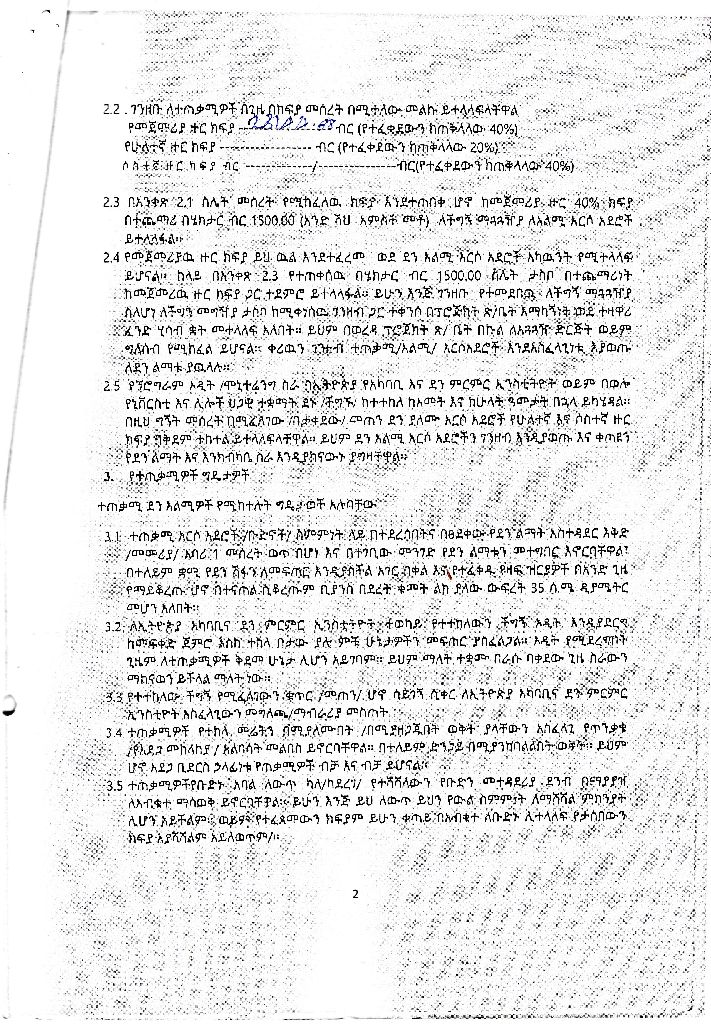 2.2 . ገንዘቡ ለተጠቃሚዎች በጊዜ በክፍያ መሰረት በሚተለው መልኩ ይተላለፍላቸዋል
የመጀመሪያ ዙር ክፍያ ብር (የተፈቀደውን ከጠቅላላው 40%)
የሁለተኛ ዙር ክፍያ ------------------ ብር (የተፈቀደውን ከጠቅላላው 20%)
ሶስተኛ ዙር ክፍያ ብር -------------/---------------ብር(የተፈቀደውን ከጠቅላላው 40%)
2.3 በአንቀጽ 2.1 ስሌት መሰረት የሚከፈለዉ ክፍያ እንደተጠበቀ ሆኖ ከመጀመሪያ ዙር 40% ክፍያ
በተጨማሪ በሄክታር ብር 1500.00 (አንድ ሽህ አምስት መቶ) ለችግኝ ማጓጓዣያ ለአልሚ አርሶ አደሮች
ይተላለፋል።
2.4 የመጀመሪያዉ ዙር ክፍያ ይህ ዉል እንደተፈረመ ወደ ደን አልሚ አርሶ አደሮች አካዉንት የሚተላለፍ
ይሆናል። ከላይ በአንቀጽ 2.3 የተጠቀሰዉ በሄክታር ብር 1500.00 ስሌት ታስቦ በተጨማሪነት
ከመጀመሪዉ ዙር ክፍያ ጋር ተደምሮ ይተላለፋል። ይሁን እንጅ ገንዘቡ የተመደበዉ ለችግኝ ማጓጓዣያ
ስለሆነ ለችግኝ መግዣያ ታስቦ ከሚቀነሰዉ ገንዘብ ጋር ተቀንሶ በፕሮጀክት ጽ/ቤት አማካኝነት ወደ ተዘዋሪ
ፈንድ ሂሳብ ቋት መተላለፍ አለበት። ይህም በወረዳ ፕሮጀክት ጽ/ ቤት በኩል ለአጓጓዥ ድርጅት ወይም
ግለሰብ የሚከፈል ይሆናል። ቀሪዉን ገንዘብ ተጠቃሚ/አልሚ/ አርሶአደሮች እንደአስፈላጊነቱ እያወጡ
ለደን ልማቱ ያዉላሉ።
2.5 የፕሮግራም ኦዲት /ሞኒተሪንግ ስራ በኢትዮጵያ የአካባቢ እና ደን ምርምር ኢንስቲትዮት ወይም በወሎ
የኒቨርስቲ እና ሌሎች ህጋዊ ተቋማት ደኑ /ችግኙ/ ከተተከለ ከአመት እና ከሁለት ዓመታት በኋላ ይካሄዳል።
በዚህ ግኝት መሰረት በሚፈለገው /በታቀደው/ መጠን ደን ያለሙ አርሶ አደሮች የሁለተኛ እና ሶስተኛ ዙር
ክፍያ በቅደም ተከተል ይተላለፍላቸዋል። ይህም ደን አልሚ አርሶ አደሮችን ገንዘብ እንዲያወጡ እና ቀጠደን
የደን ልማት እና እንክብካቤ ስራ እንዲያከናውኑ ያግዛቸዋል።
3. የተጠቃሚዎች ግዴታዎች
ተጠቃሚ ደን አልሚዎች የሚከተሉት ግዴታወች አሉባቸው
3.1 ተጠቃሚ አርሶ አደሮች /ቡድኖች/ ስምምነት ላይ በተደረሰባትና በፀደቀው የደን ልማት አስተዳደር እቅድ
/መመሪያ/ አባሪ 1 መሰረት ወጥ በሆነ እና በተገቢው መንገድ የደን ልማቱን መተግበር እኖርባቸዋል፤
በተለይም ቋሚ የደን ሽፋን ለመፍጠር እንዲያስችል አገር በቀል እና የተፈቀዱ የዛፍ ዝርያዎች በአንድ ጊዜ
የማይቆረጡ ሆኖ በተናጠል ሲቆረጡም ቢያንስ በደረት ቁመት ልክ ያለው ውፍረት 35 ሴ.ሜ ዲያሜትር
መሆን አለበት።
3.2. ለኢትዮጵያ አካባቢና ደን ምርምር ኢንስቲትዮቶች ተወካይ የተተከለውን ችግኝ ኦዲት እንዲያደርግ
ከመፍቀድ ጀምሮ እስከ ተከላ ቦታው ያሉ ምቹ ሁኔታዎችን መፍጠር ያስፈልጋል። ኦዲት የሚደረግበት
ጊዜም ለተጠቃሚዎች ቅድመ ሁኔታ ሊሆን አይገባም። ይህም ማለት ተቋሙ በራሱ ባቀደው ጊዜ ስራውን
ማከናወን ይችላል ማለት ነው።
3.3 የተተከለው ችግኝ የሚፈለገውን ቁጥር /መጠን/ ሆኖ ሳይገኝ ሲቀር ለኢትዮጵያ አካባቢና ደን ምርምር
ኢንስቲዮት አስፈላጊውን መግለጫ/ማብራሪያ መስጠት
3.4 ተጠቃሚዎች የተከላ መሬትን በሚያለሙበት /በሚያዘጋጁበት ወቅት ያላቸውን አስፈላጊ የጥንቃቄ
/የአደጋ መከላከያ / አልባሳት መልበስ ይኖርባቸዋል። በተለይም ድንጋይ በሚያንከባልልበት ወቅት። ይህም
ሆኖ አደጋ ቢደርስ ኃላፊነቱ የጠቃሚዎች ብቻ እና ብቻ ይሆናል።
3.5 ተጠቃሚዎችየቡድኑ አባል ለውጥ ካለ/ከደረገ/ የተሻሻለውን የቡድን መተዳደሪያ ደንብ በማያያዝ
ለአብቁተ ማሳወቅ ይኖርባቸዋል። ይሁን እንጅ ይህ ለውጥ ይህን የውል ስምምነት ለማሻሻል ምክንያት
ሊሆን አይችልም፤ ወይም የተፈጸመውን ክፍያም ይሁን ቀጠይ በአብቁተ ለቡድኑ ሊተላለፍ የታሰበውን
ክፍያ አያሻሽልም አይለወጥም/።
2